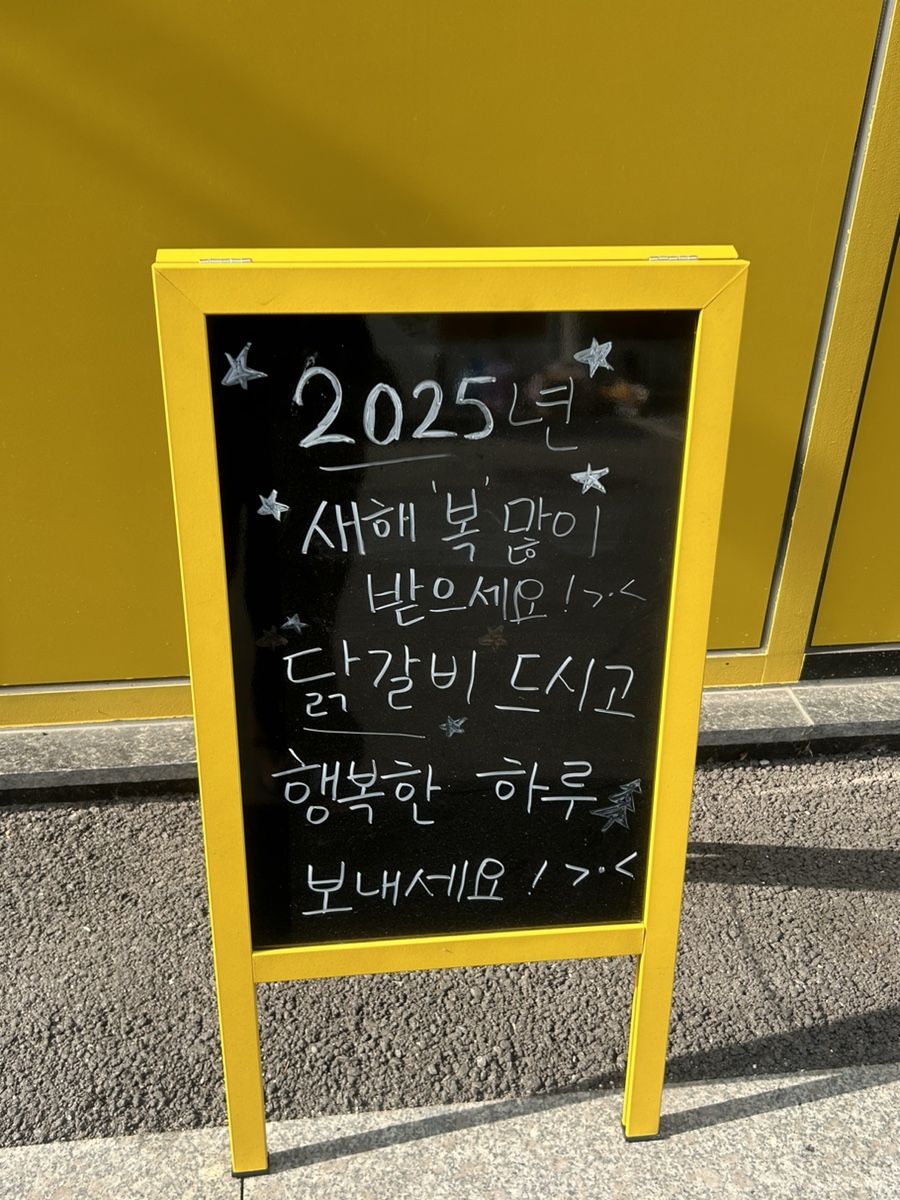 2025년
새해 '복' 많이
받으세요! >.<
닭갈비 드시고
행복한 하루
보내세요! >.<